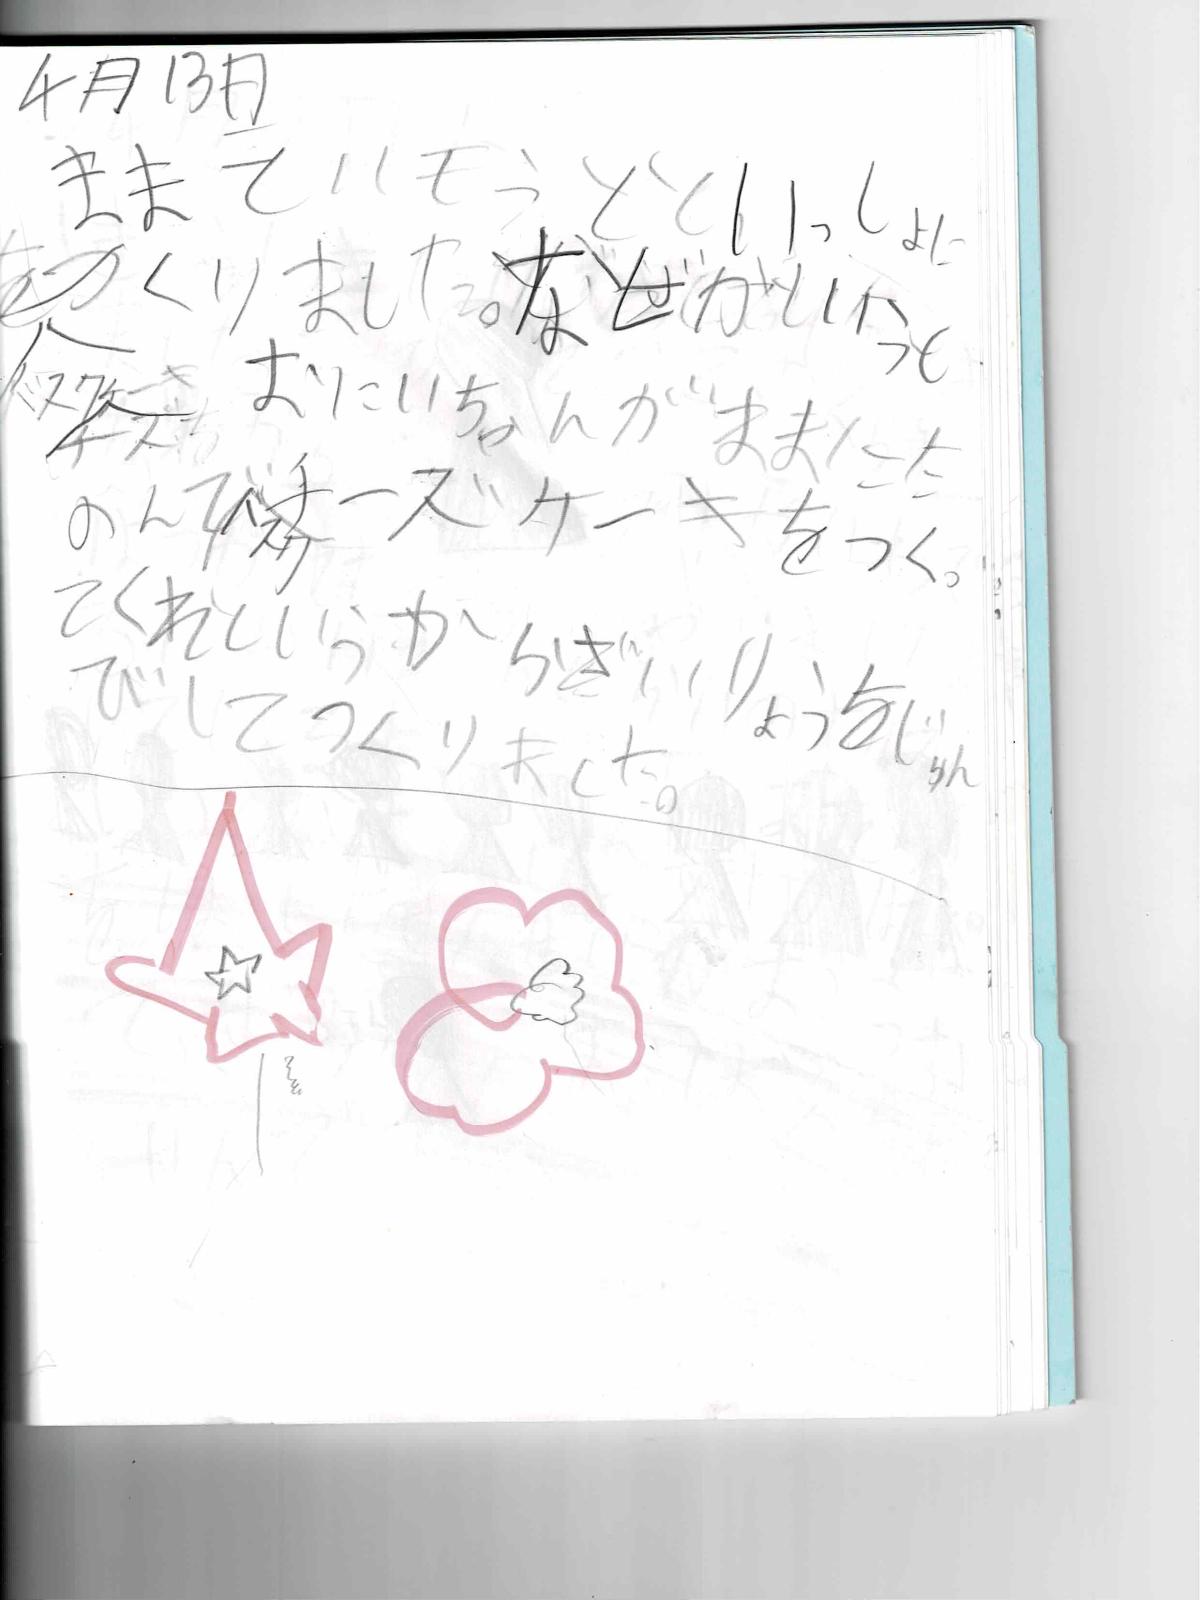 4月13日
ままていもうとといっしょに
をつくりました。なぜかいつも
バスクチーズケーキ おにいちゃんがままにた
のんでバスクチーズケーキをつく。
てくれというからざいりょうをじゅん
びしてつくりました。